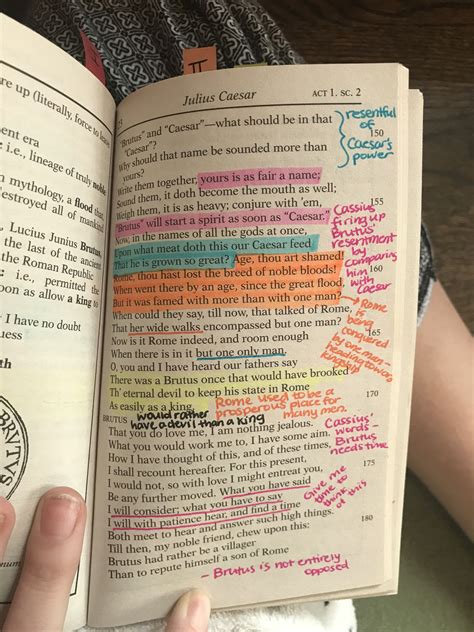 II
Julius Caesar
ACT 1. SC. 2
"Brutus" and "Caesar"—what should be in that
"Caesar"?
150
Why should that name be sounded more than
yours?
Write them together, yours is as fair a name;
Sound them, it doth become the mouth as well;
Weigh them, it is as heavy; conjure with 'em,
155
"Brutus" will start a spirit as soon as "Caesar."
Now, in the names of all the gods at once,
Upon what meat doth this our Caesar feed
That he is grown so great? Age, thou art shamed!
Rome, thou hast lost the breed of noble bloods!
160
When went there by an age, since the great flood,
But it was famed with more than with one man?
When could they say, till now, that talked of Rome,
That her wide walks encompassed but one man?
Now is it Rome indeed, and room enough
165
When there is in it but one only man.
O, you and I have heard our fathers say
There was a Brutus once that would have brooked
Th' eternal devil to keep his state in Rome
As easily as a king.
170
BRUTUS
That you do love me, I am nothing jealous.
What you would work me to, I have some aim.
How I have thought of this, and of these times,
I shall recount hereafter. For this present,
I would not, so with love I might entreat you,
175
Be any further moved. What you have said
I will consider; what you have to say
I will with patience hear, and find a time
Both meet to hear and answer such high things.
Till then, my noble friend, chew upon this:
180
Brutus had rather be a villager
Than to repute himself a son of Rome
resentful
of
Caesar's
power
Cassius
firing up
Brutus'
resentment
by
comparing
him
with
Caesar
Rome
is
being
conquered
by one man-
heading towards
kingship
Rome used to be a
prosperous place for
many men.
would rather
have a devil than a king
Cassius'
words-
Brutus
needs time
Give me
time to
think
of this
- Brutus is not entirely
opposed
re up (literally, force to leave
ent era
i.e., lineage of truly noble
mythology, a flood that
destroyed all of mankind
Lucius Junius Brutus,
the last of the ancient
the Roman Republic
i.e., permitted the
on as allow a king to
I have no doubt
guess
th
BRVTVS